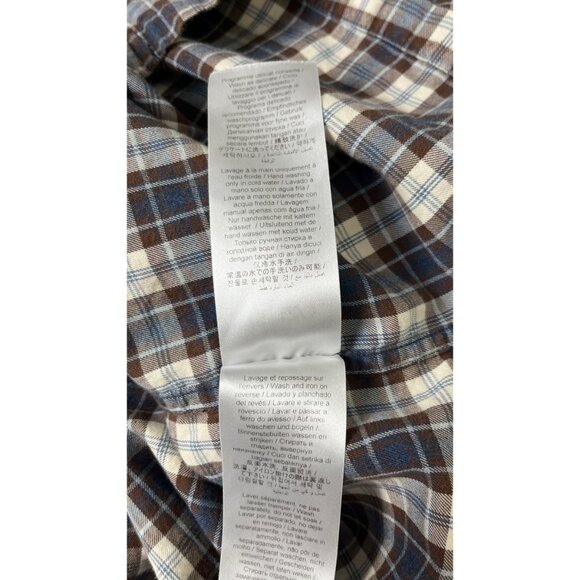 Programme délicat conseillé /
Wash as delicate / Ciclo
delicado aconsejado /
Utilizzare il programma di
lavaggio per i delicati /
Programa delicado
recomendado / Empfindliches
waschprogramm / Gebruik
programma voor fijne was /
Деликатная стирка / Cuci
menggunakan tangan atau
secara lembut /
デリケートに洗ってください /
세탁하십시오 /
Lavage à la main uniquement à
l'eau froide / Hand washing
only in cold water / Lavado a
mano solo con agua fría /
Lavare a mano solamente con
acqua fredda / Lavagem
manual apenas com água fria /
Nur handwäsche mit kaltem
wasser / Uitsluitend met de
hand wassen met koud water /
Только ручная стирка в
холодной воде / Hanya dicuci
dengan tangan di air dingin /
仅冷水手洗 /
常温の水での手洗いのみ可能 /
찬물로 손세탁할 것 /
Lavage et repassage sur
l'envers / Wash and iron on
reverse / Lavado y planchado
del revés / Lavare e stirare a
rovescio / Lavar e passar a
ferro do avesso / Auf links
waschen und bügeln /
Binnenstebuiten wassen en
strijken / Стирать и
гладить, вывернув
наизнанку / Cuci dan setrika di
bagian sebaliknya /
反面水洗，反面熨烫 /
洗濯、アイロン掛けの際は裏返し
て下さい / 뒤집어서 세탁 및
다림질할 것 /
Laver séparément, ne pas
laisser tremper / Wash
separately, do not let soak /
Lavar por separado, no dejar
en remojo / Lavare
separatamente, non lasciare in
ammollo / Lavar
separadamente, não pôr de
molho / Separat waschen, nicht
einweichen / Gescheiden
wassen, niet laten weken /
Стирать отдельно, не